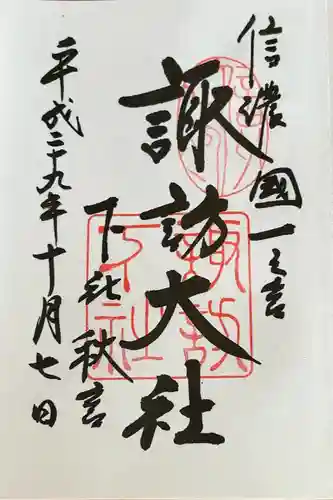 信濃國一之宮
諏訪大社
下社秋宮
平成二十九年十月七日
諏訪
下社